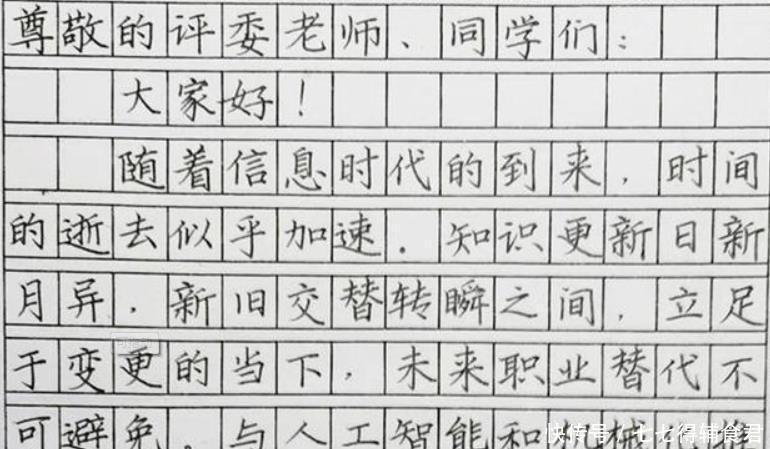 尊敬的评委老师、同学们：
大家好！
随着信息时代的到来，时间
的逝去似乎加速．知识更新日新
月异，新旧交替转瞬之间，立足
于变更的当下，未来职业替代不
可避免．与人工智能和
快传号／七七得辅食君